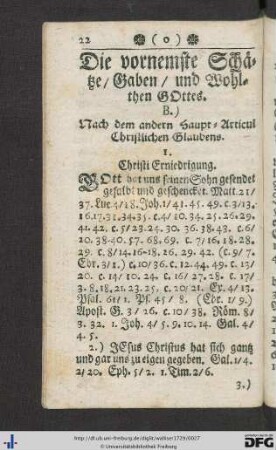 22 ❋ ( o ) ❋
Die vornemste Schä-
tze/ Gaben/ und Wohl-
then GOttes.
B.)
Nach dem andern Haupt-Articul
Christlichen Glaubens.
1.
Christi Erniedrigung.
GOtt hat uns seinen Sohn gesendet
gesalbt und geschencket. Matt. 21/
37. Luc. 4/18. Joh. 1/41. 45. 49. c. 3/13.
16. 17. 31. 34. 35. c. 4/10. 34. 25. 26. 29.
41. 42. c. 5/23. 24. 30. 36. 38. 43. c. 6/
20. 38-40. 57. 68. 69. c. 7/16. 18. 28.
29. c. 8/14. 16-18. 26. 29. 42. (c. 9/7.
Ebr. 3/1.) c. 10/36. c. 12/44. 49. c. 13/
20. c. 14/10. 24. c. 16/27. 28. c. 17/
3. 8. 18. 21. 23. 25. c. 20/21. Ex. 4/13.
Psal. 61/1. Ps. 45/8. (Ebr. 1/9.)
Apost. G. 3/26. c. 10/38. Röm. 8/
3. 32. 1. Joh. 4/5. 9. 10. 14. Gal. 4/
4. 5.
2.) JEsus Christus hat sich gantz
und gar uns zu eigen gegeben. Gal. 1/4.
2/20. Eph. 5/2. 1. Tim. 2/6.
3.)
http://dl.ub.uni-freiburg.de/diglit/walliser1729/0027
© Universitätsbibliothek Freiburg
gefördert durch die
DFG